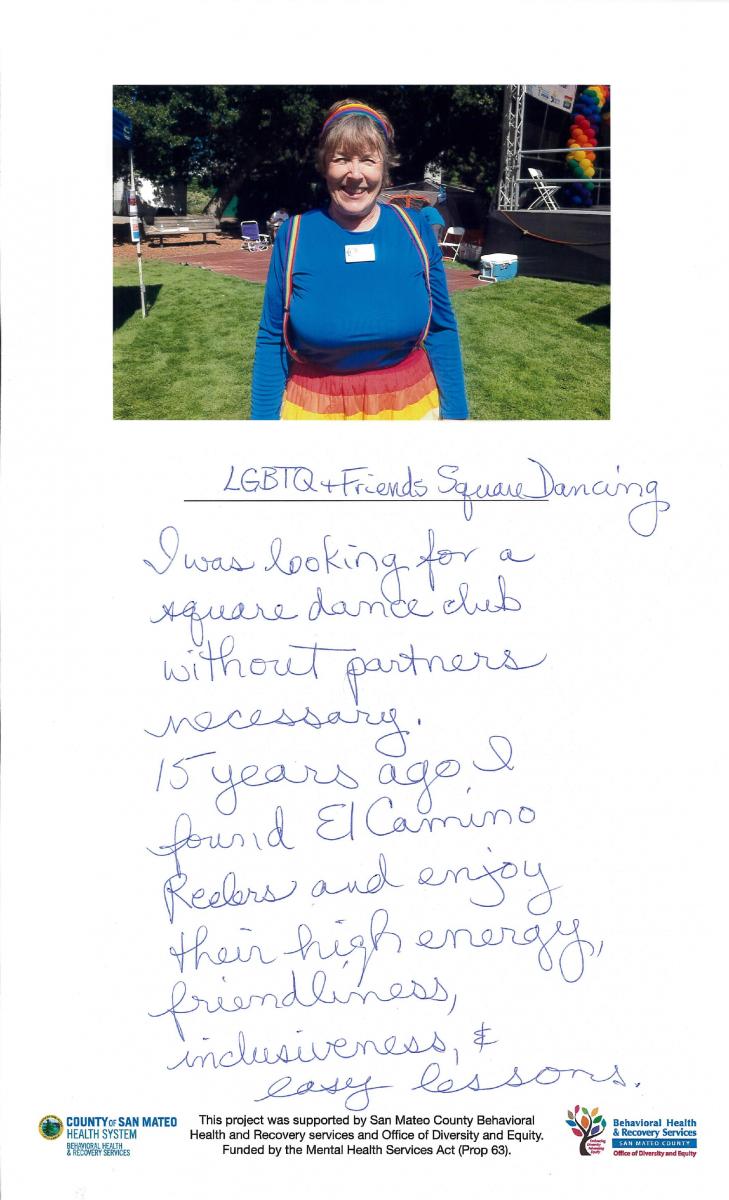 LGBTQ + Friends Square Dancing
I was looking for a
square dance club
without partners
necessary.
15 years ago I
found El Camino
Reelers and enjoy
their high energy,
friendliness,
inclusiveness, &
easy lessons.
COUNTY OF SAN MATEO
HEALTH SYSTEM
BEHAVIORAL HEALTH
& RECOVERY SERVICES
This project was supported by San Mateo County Behavioral
Health and Recovery services and Office of Diversity and Equity.
Funded by the Mental Health Services Act (Prop 63).
Embracing
Diversity
Advancing
Equity
Behavioral Health
& Recovery Services
SAN MATEO COUNTY
Office of Diversity and Equity